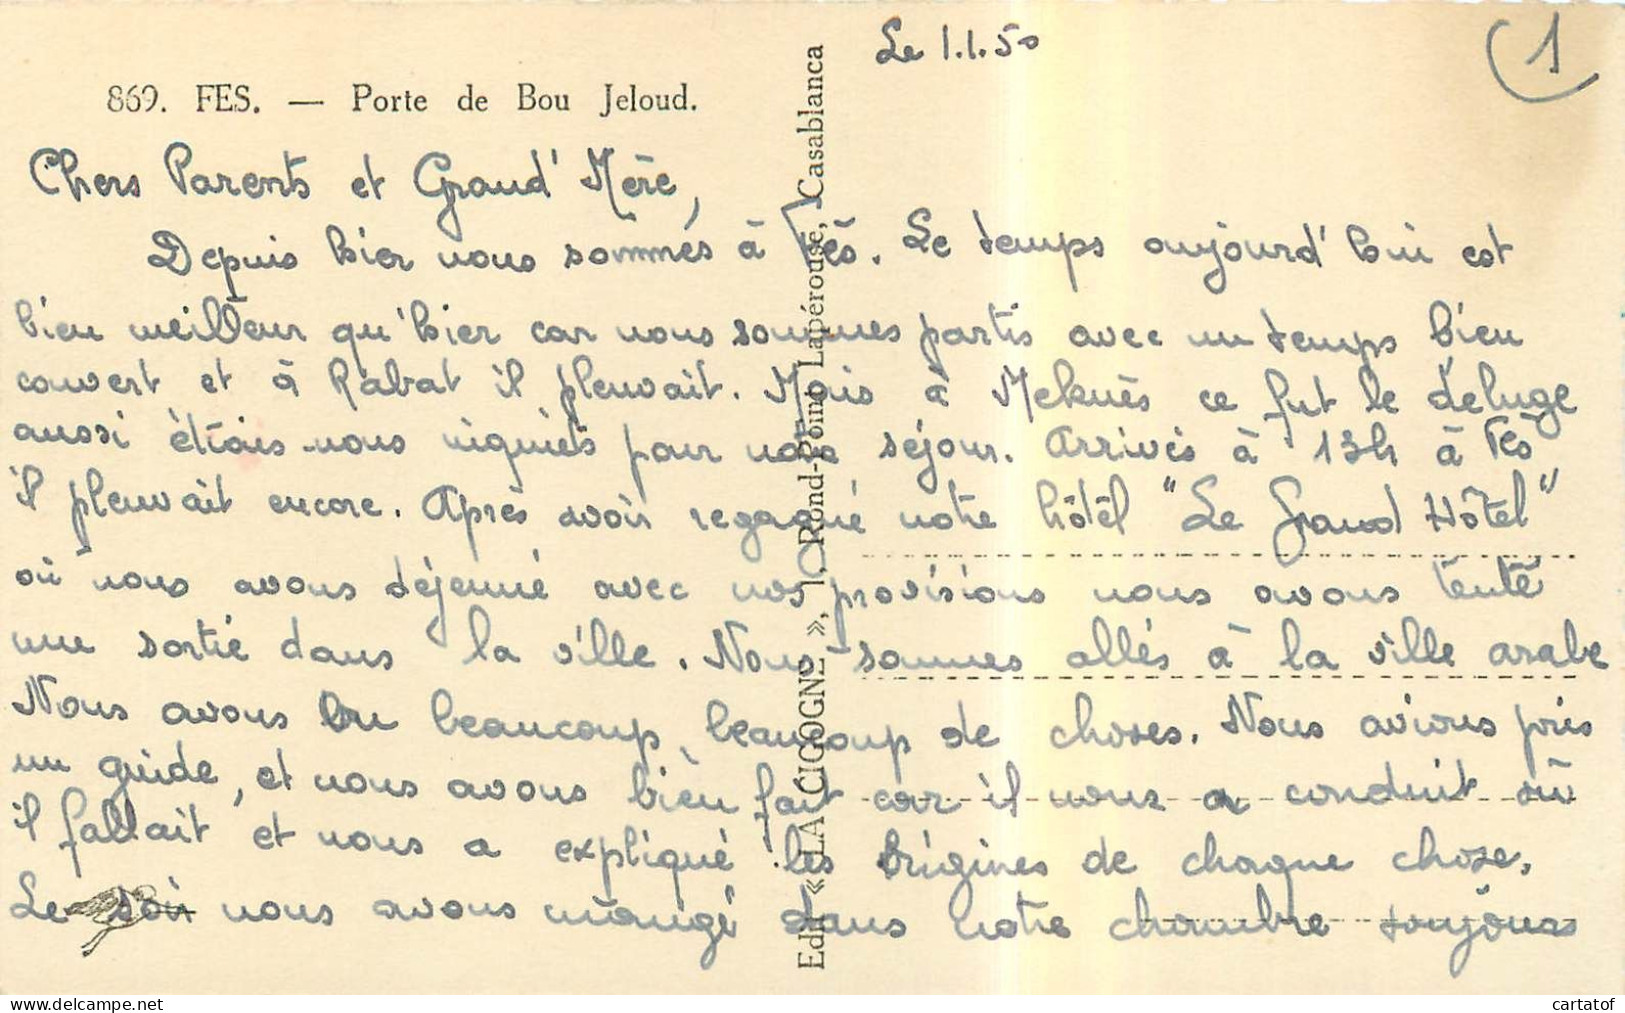 Le 1.1.50
1
869. FES. — Porte de Bou Jeloud.
Chers Parents et Grand' Mère,
Depuis hier nous sommes à Fès. Le temps aujourd'hui est
bien meilleur qu'hier car nous sommes partis avec un temps bien
couvert et à Rabat il pleuvait. Mais à Meknès ce fut le déluge
aussi étions-nous inquiets pour notre séjour. Arrivés à 13h à Fès
il pleuvait encore. Après avoir regagné notre hôtel "Le Grand Hôtel"
où nous avons déjeuné avec nos provisions nous avons tenté
une sortie dans la ville. Nous sommes allés à la ville arabe
Nous avons vu beaucoup, beaucoup de choses. Nous avions pris
un guide, et nous avons bien fait car il nous a conduit où
il fallait et nous a expliqué les origines de chaque chose.
Le soir nous avons mangé dans notre chambre toujours
Edit. « LA CIGOGNE », 1. Rond-Point Lapérouse, Casablanca
delcampe.net
cartatof